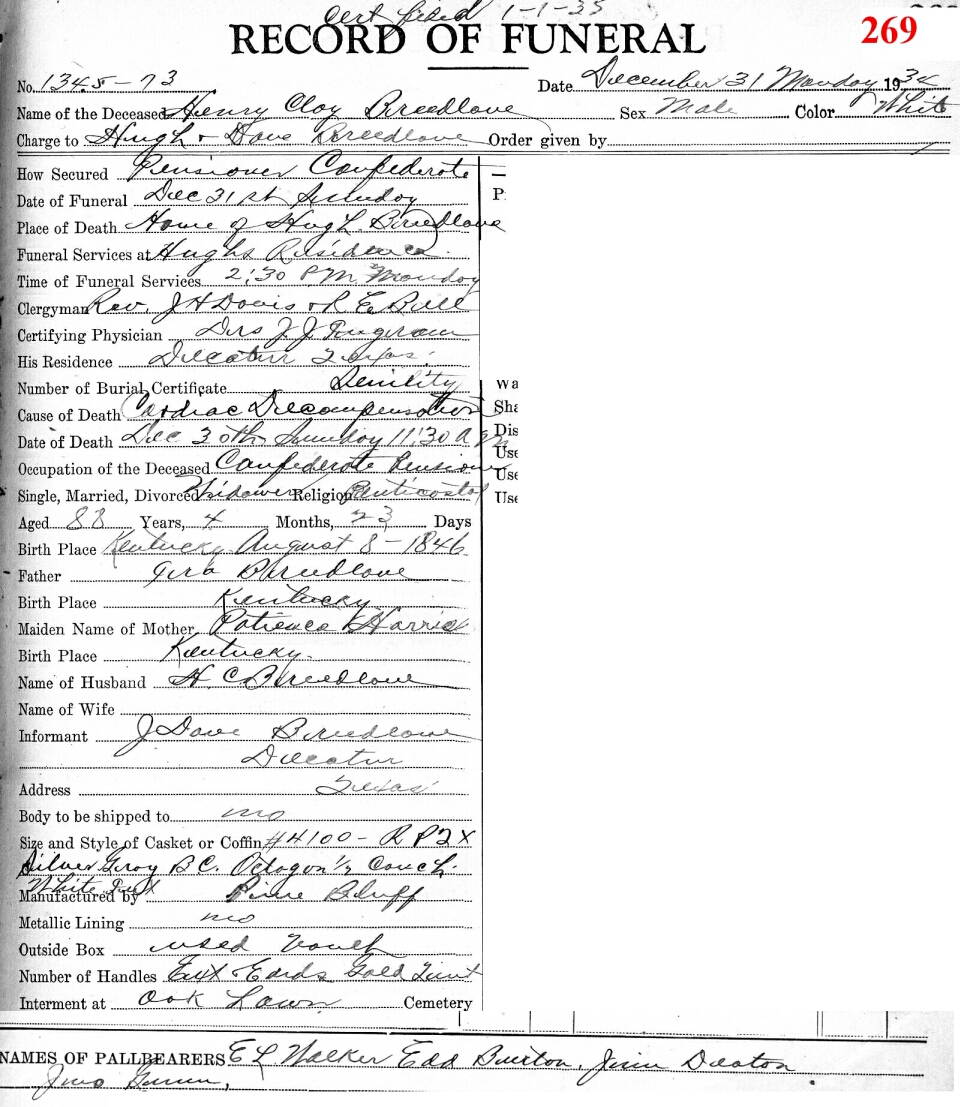 Cert filed 1-1-35
RECORD OF FUNERAL
269
No. 1345-73 Date December 31 Monday 1934
Name of the Deceased Henry Clay Breedlove Sex Male Color White
Charge to Hugh & Dave Breedlove Order given by
How Secured Pensioner Confederate
Date of Funeral Dec 31st Sunday
P
Place of Death Home of Hugh Breedlove
Funeral Services at Hughs Residence
Time of Funeral Services 2:30 PM Monday
Clergyman Rev. J H Davis & R E Bull
Certifying Physician Drs J. J. Ingram
His Residence Decatur Texas.
Number of Burial Certificate Senility
Wa
Cause of Death Cardiac Decompensation
Sha
Date of Death Dec 30th Sunday 11:30 a.m
Dis
Use
Occupation of the Deceased Confederate Pensioner
Use
Single, Married, Divorced Widower Religion Penticostal
Use
Aged 88 Years, 4 Months, 23 Days
Birth Place Kentucky August 8-1846
Father Breedlove
Birth Place Kentucky
Maiden Name of Mother Patience Harris
Birth Place Kentucky.
Name of Husband H C Breedlove
Name of Wife
Informant J Dave Breedlove
Decatur
Address Texas
Body to be shipped to no
Size and Style of Casket or Coffin #4100- R P 2X
Silver Gray B C. Octagon ½ Couch
White Int
Manufactured by Pine Bluff
Metallic Lining no
Outside Box used Vault
Number of Handles Ext & Ends Gold
Interment at Oak Lawn Cemetery
NAMES OF PALLBEARERS E L Walker Edd Buxton, Jim Deaton
Jino